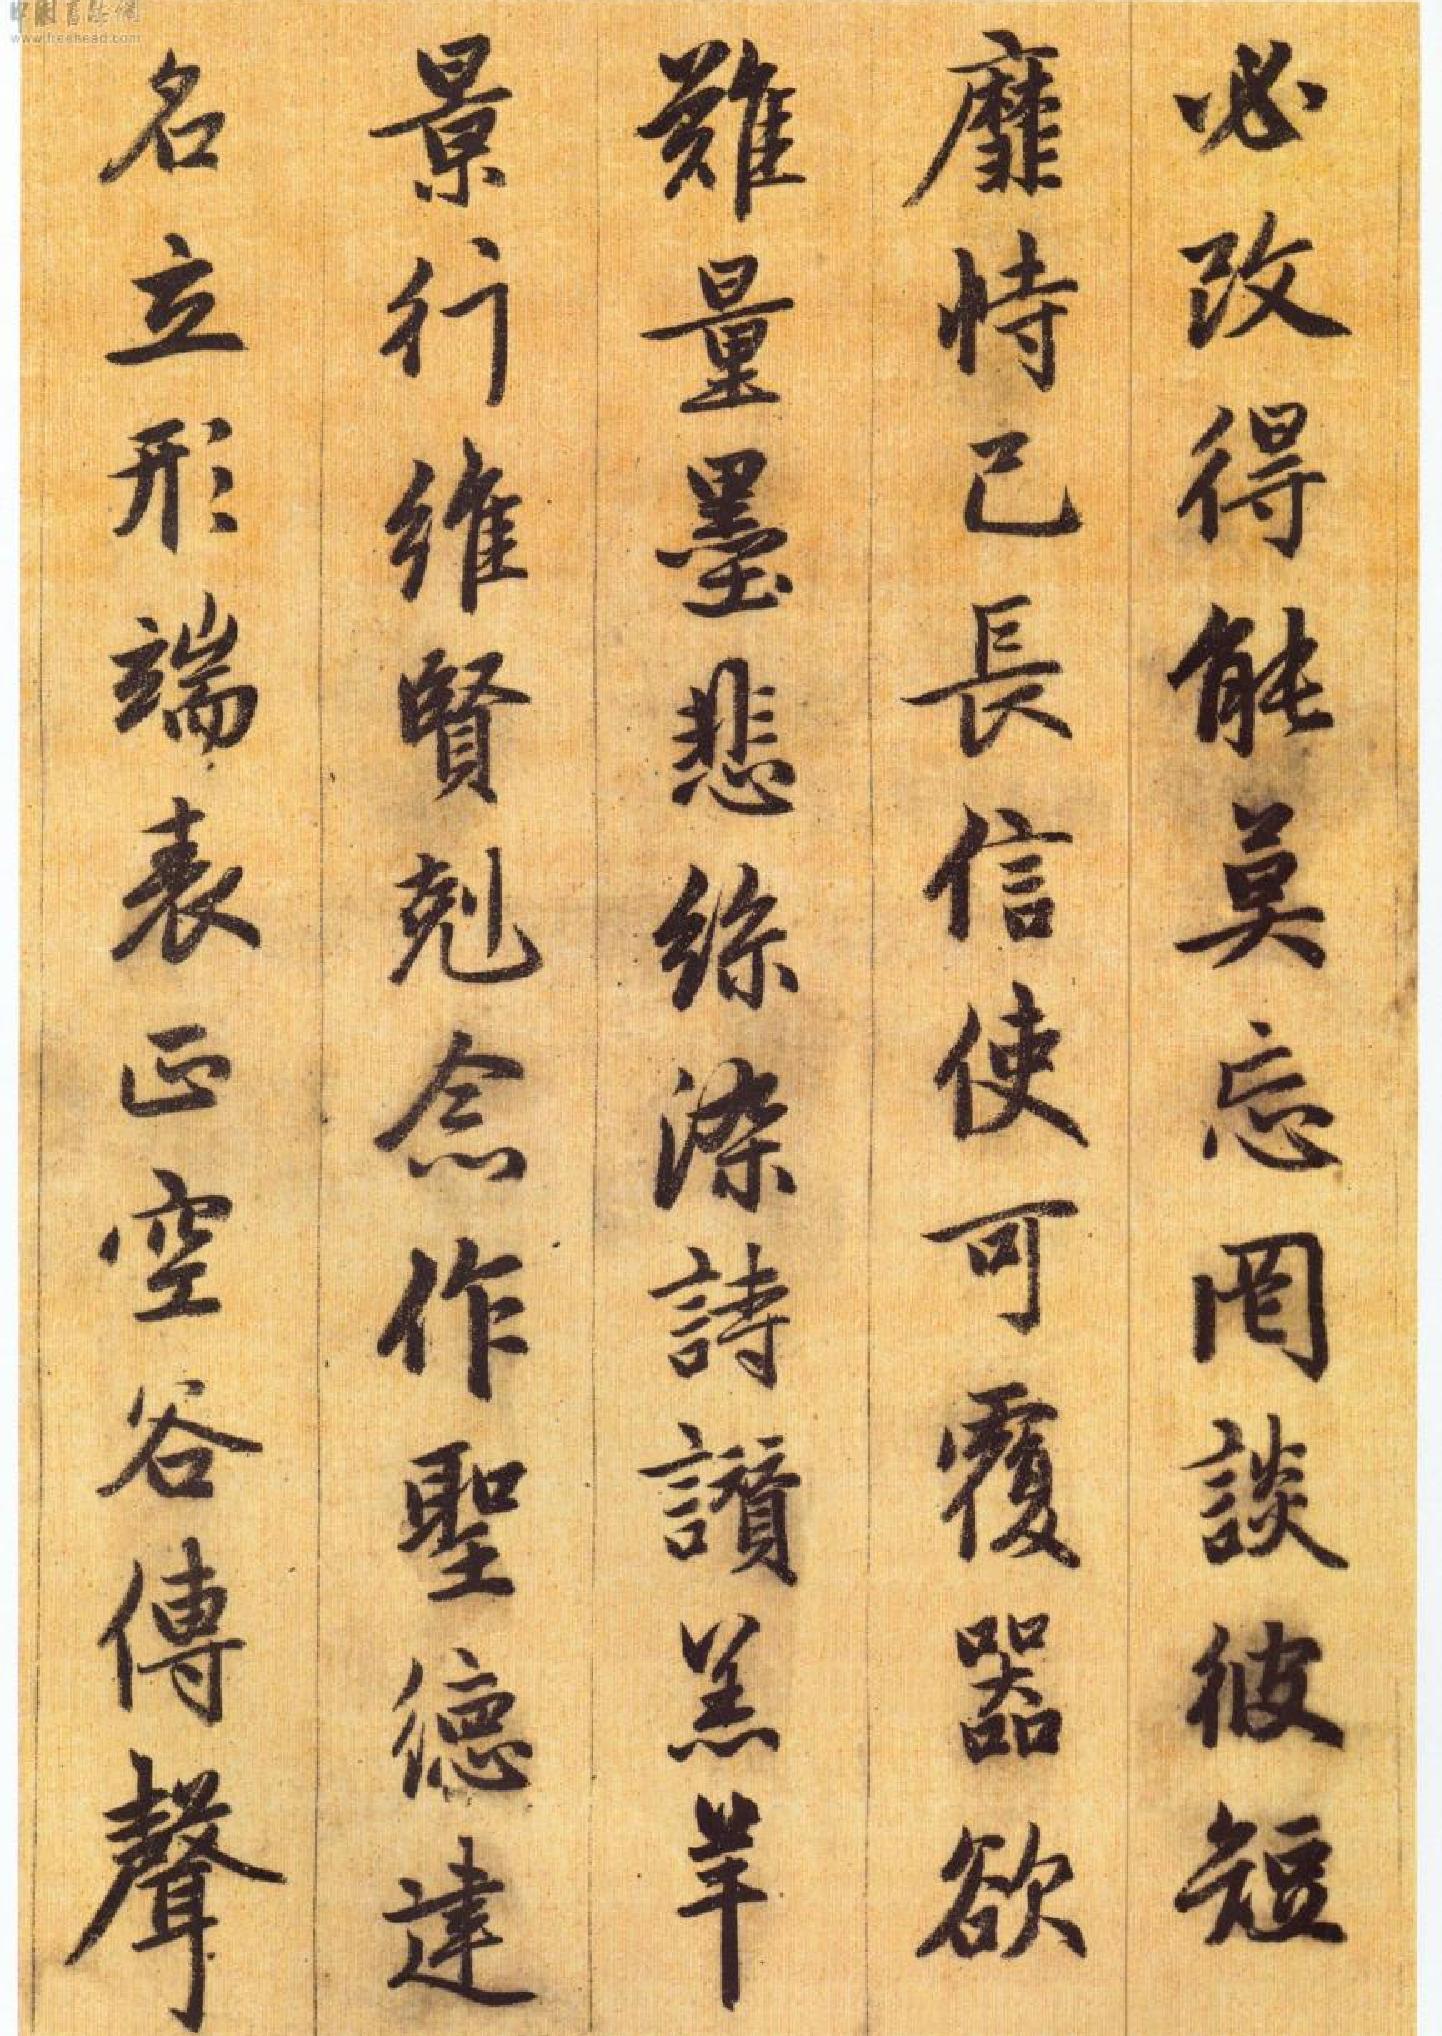 必改得能莫忘罔談彼短
靡恃己長信使可覆器欲
難量墨悲絲染詩讚羔羊
景行維賢剋念作聖德建
名立形端表正空谷傳聲
中国书法网
www.freehead.com